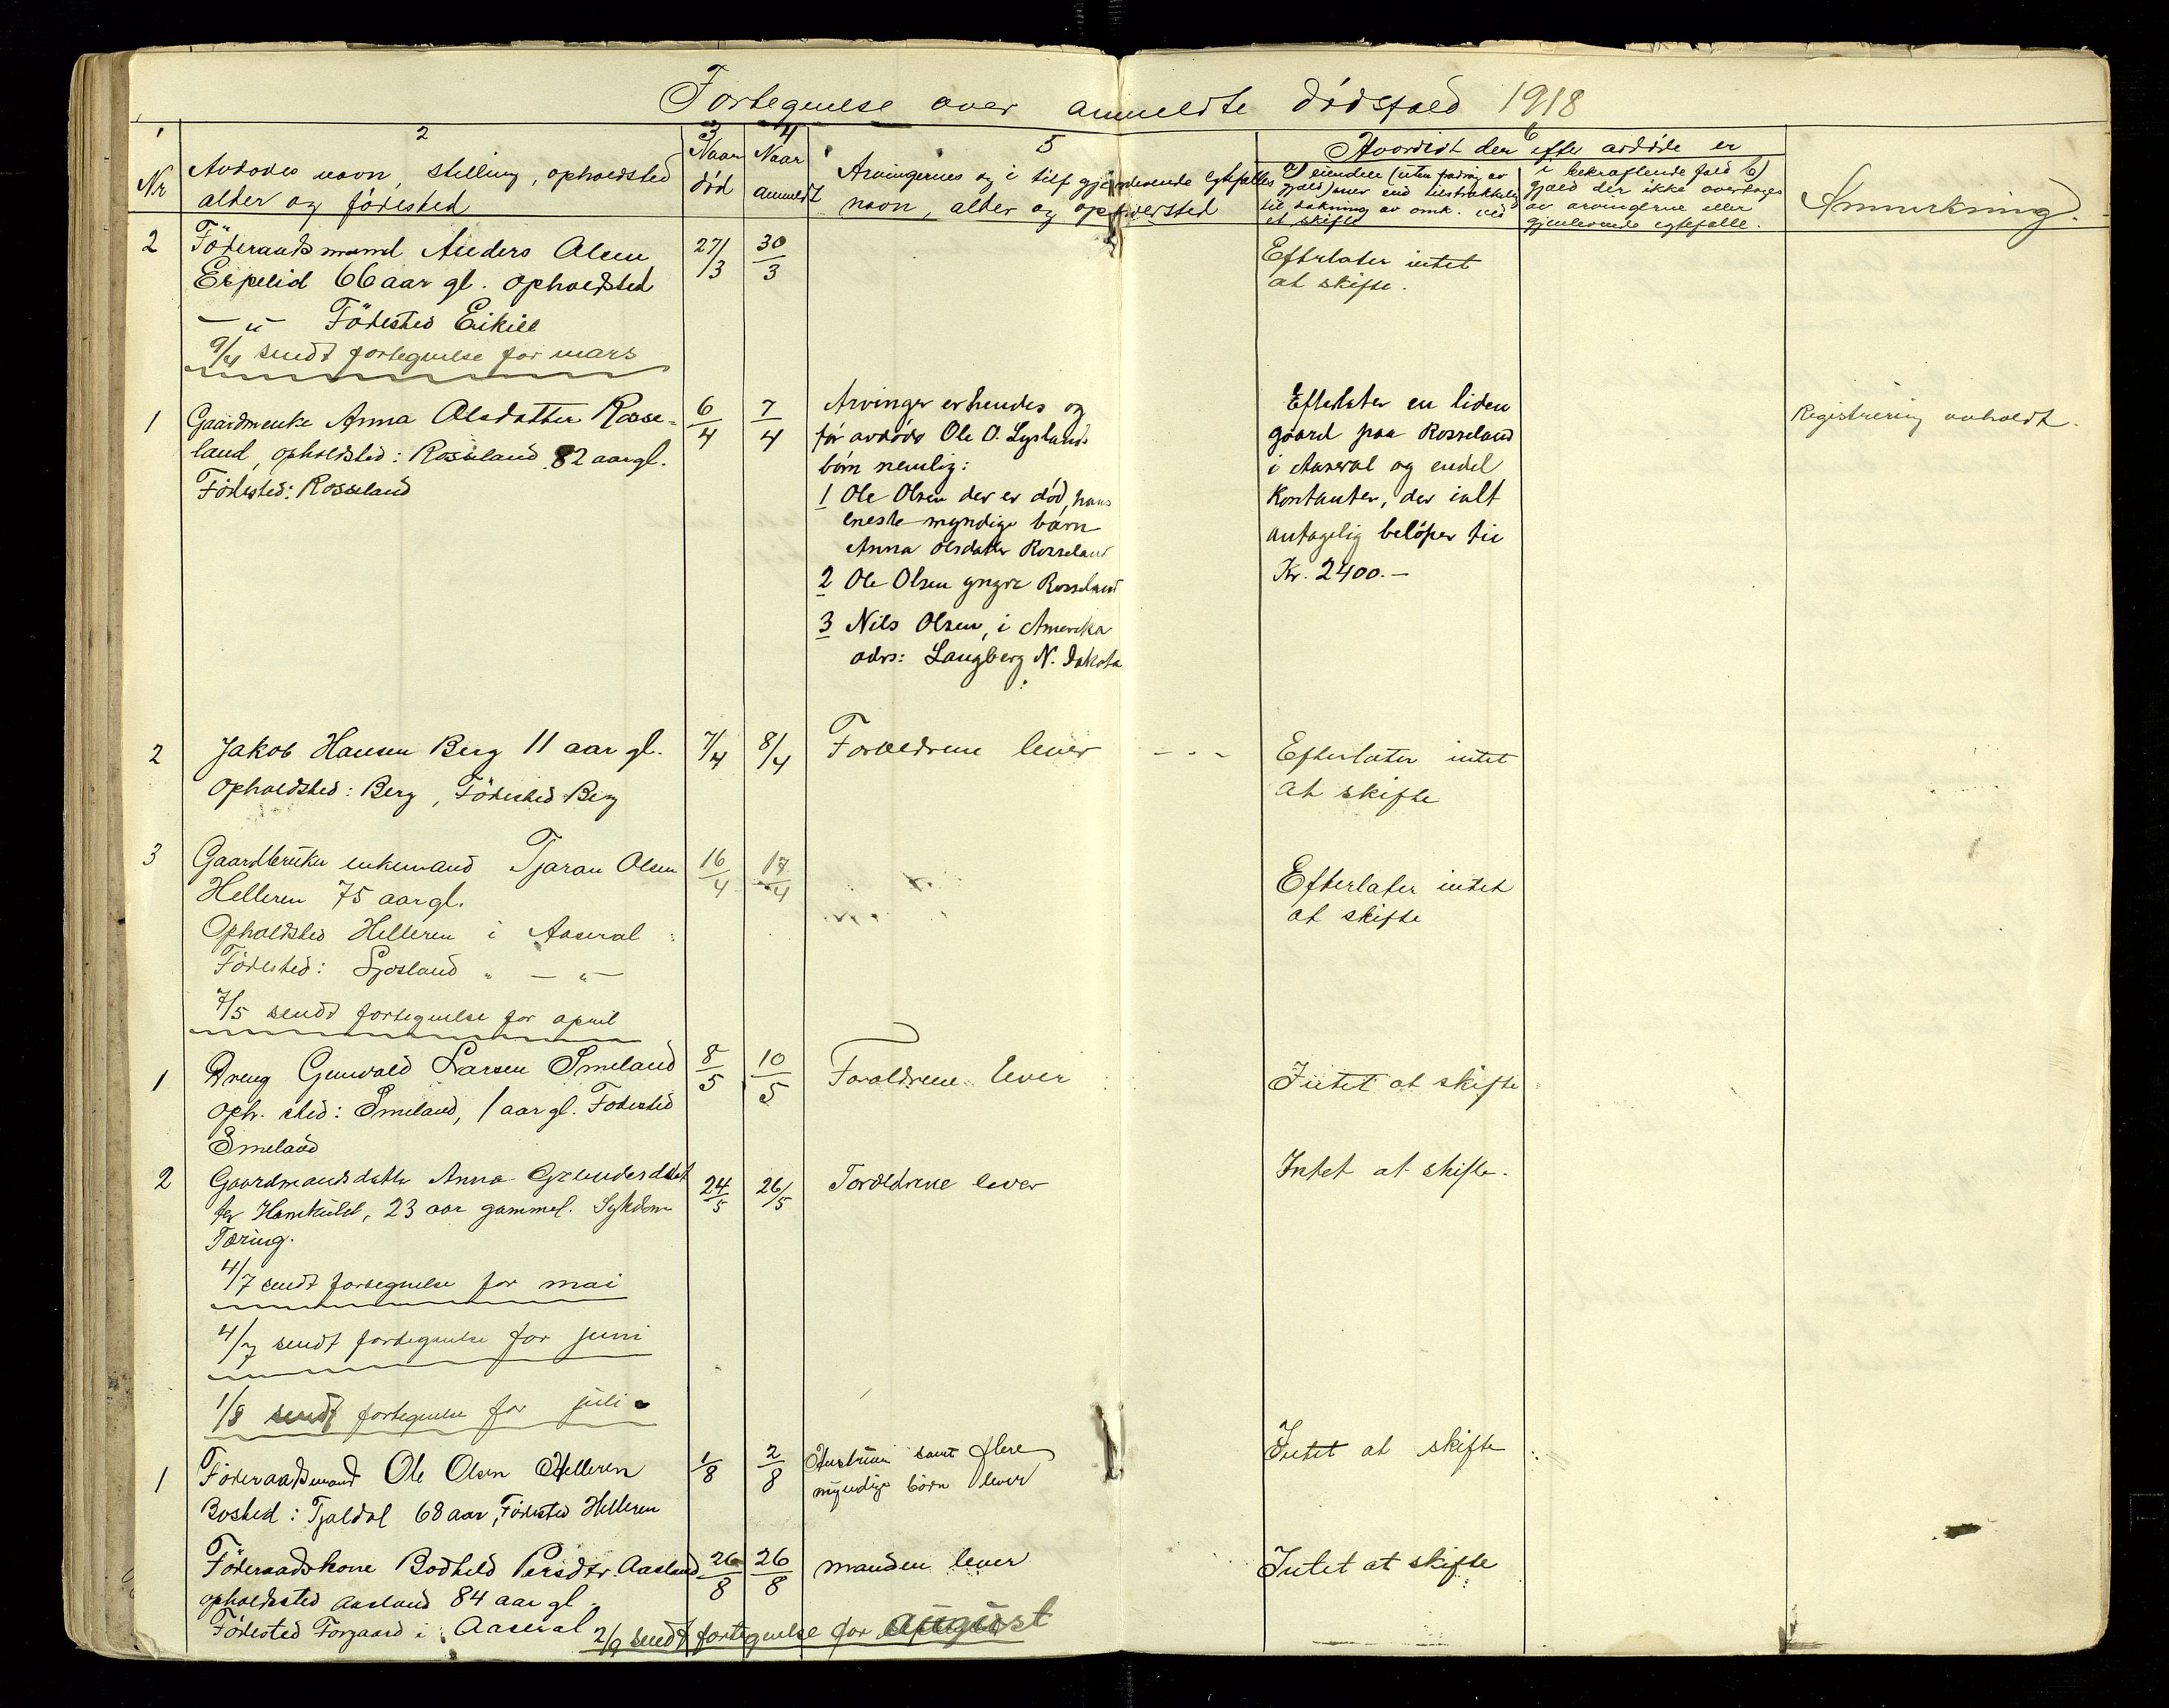 Fortegnelse over anmeldte dødsfald 1918
1 2 3 4 5 6
Nr
Avdødes navn, stilling, opholdsted
alder og fødested
Naar
død
Naar
anmeldt
Arvingernes og i tilf gjenlevende egtefælles
navn, alder og opholdsted
Hvorvidt der efter avdøde er
a) eiendele (uten fradrag av
gjæld) mer end tilstrækkelig
til dækning av omk. ved
et skifte
i bekræftende fald b)
gjæld der ikke overtages
av arvingerne eller
gjenlevende egtefælle.
Anmerkning.
2 Föderaadsmand Anders Olsen 27/3 30/3 Efterlater intet
Espelid 66 aar gl. opholdsted at skifte.
— " — Födested Eikill
9/4 sendt fortegnelse for mars
1 Gaardmenke Anna Olsdatter Rosse= 6/4 7/4
land, opholdsted: Rosseland 82 aar gl.
Födested: Rosseland
Arvinger er hendes og
før avdøde Ole O. Lyslands
børn nemlig:
1 Ole Olsen der er død, hans
eneste myndige barn
Anna Olsdatter Rosseland
2 Ole Olsen yngre Rosseland
3 Nils Olsen, i Amerika
adrs: Langberg N. Dakota
Efterlater en liden
gaard paa Rosseland
i Aaseral og endel
Kontanter, der ialt
antagelig belöper til
Kr. 2400.-
Registrering avholdt.
2 Jakob Hansen Berg 11 aar gl. 7/4 8/4 Forældrene lever - - - Efterlater intet
Opholdsted: Berg, Födested Berg at skifte
3 Gaardbruker enkemand Tjaran Olsen 16/4 17/4 Efterlater intet
Helleren 75 aar gl. at skifte
Opholdsted Helleren i Aaseral
Födested: Ljosland " — " —
7/5 sendt fortegnelse for april
1 Dreng Gunvald Larsen Smeland 8/5 10/5 Forældrene lever Intet at skifte
Oph. sted: Smeland, 1 aar gl. Fodested
Smeland
2 Gaardmandsdatter Anna Gjeruldsdat 24/5 26/5 Forældrene lever Intet at skifte.
ter 23 aar gammel. Sykdom
Tæring.
4/7 sendt fortegnelse for mai
4/7 sendt fortegnelse for juni
1/8 sendt fortegnelse for juli
1 Föderaadsmand Ole Olsen Helleren 1/8 2/8 Hustruen samt flere Intet at skifte
Bosted: Tjaldal 68 aar, Födested Helleren myndige börn lever
Föderaadskone Bodheld Persdtr. Aasland 26/8 26/8 manden lever Intet at skifte
opholdssted Aasland 84 aar gl.
Födested Forgaard i Aaseral 2/9 sendt fortegnelse for august